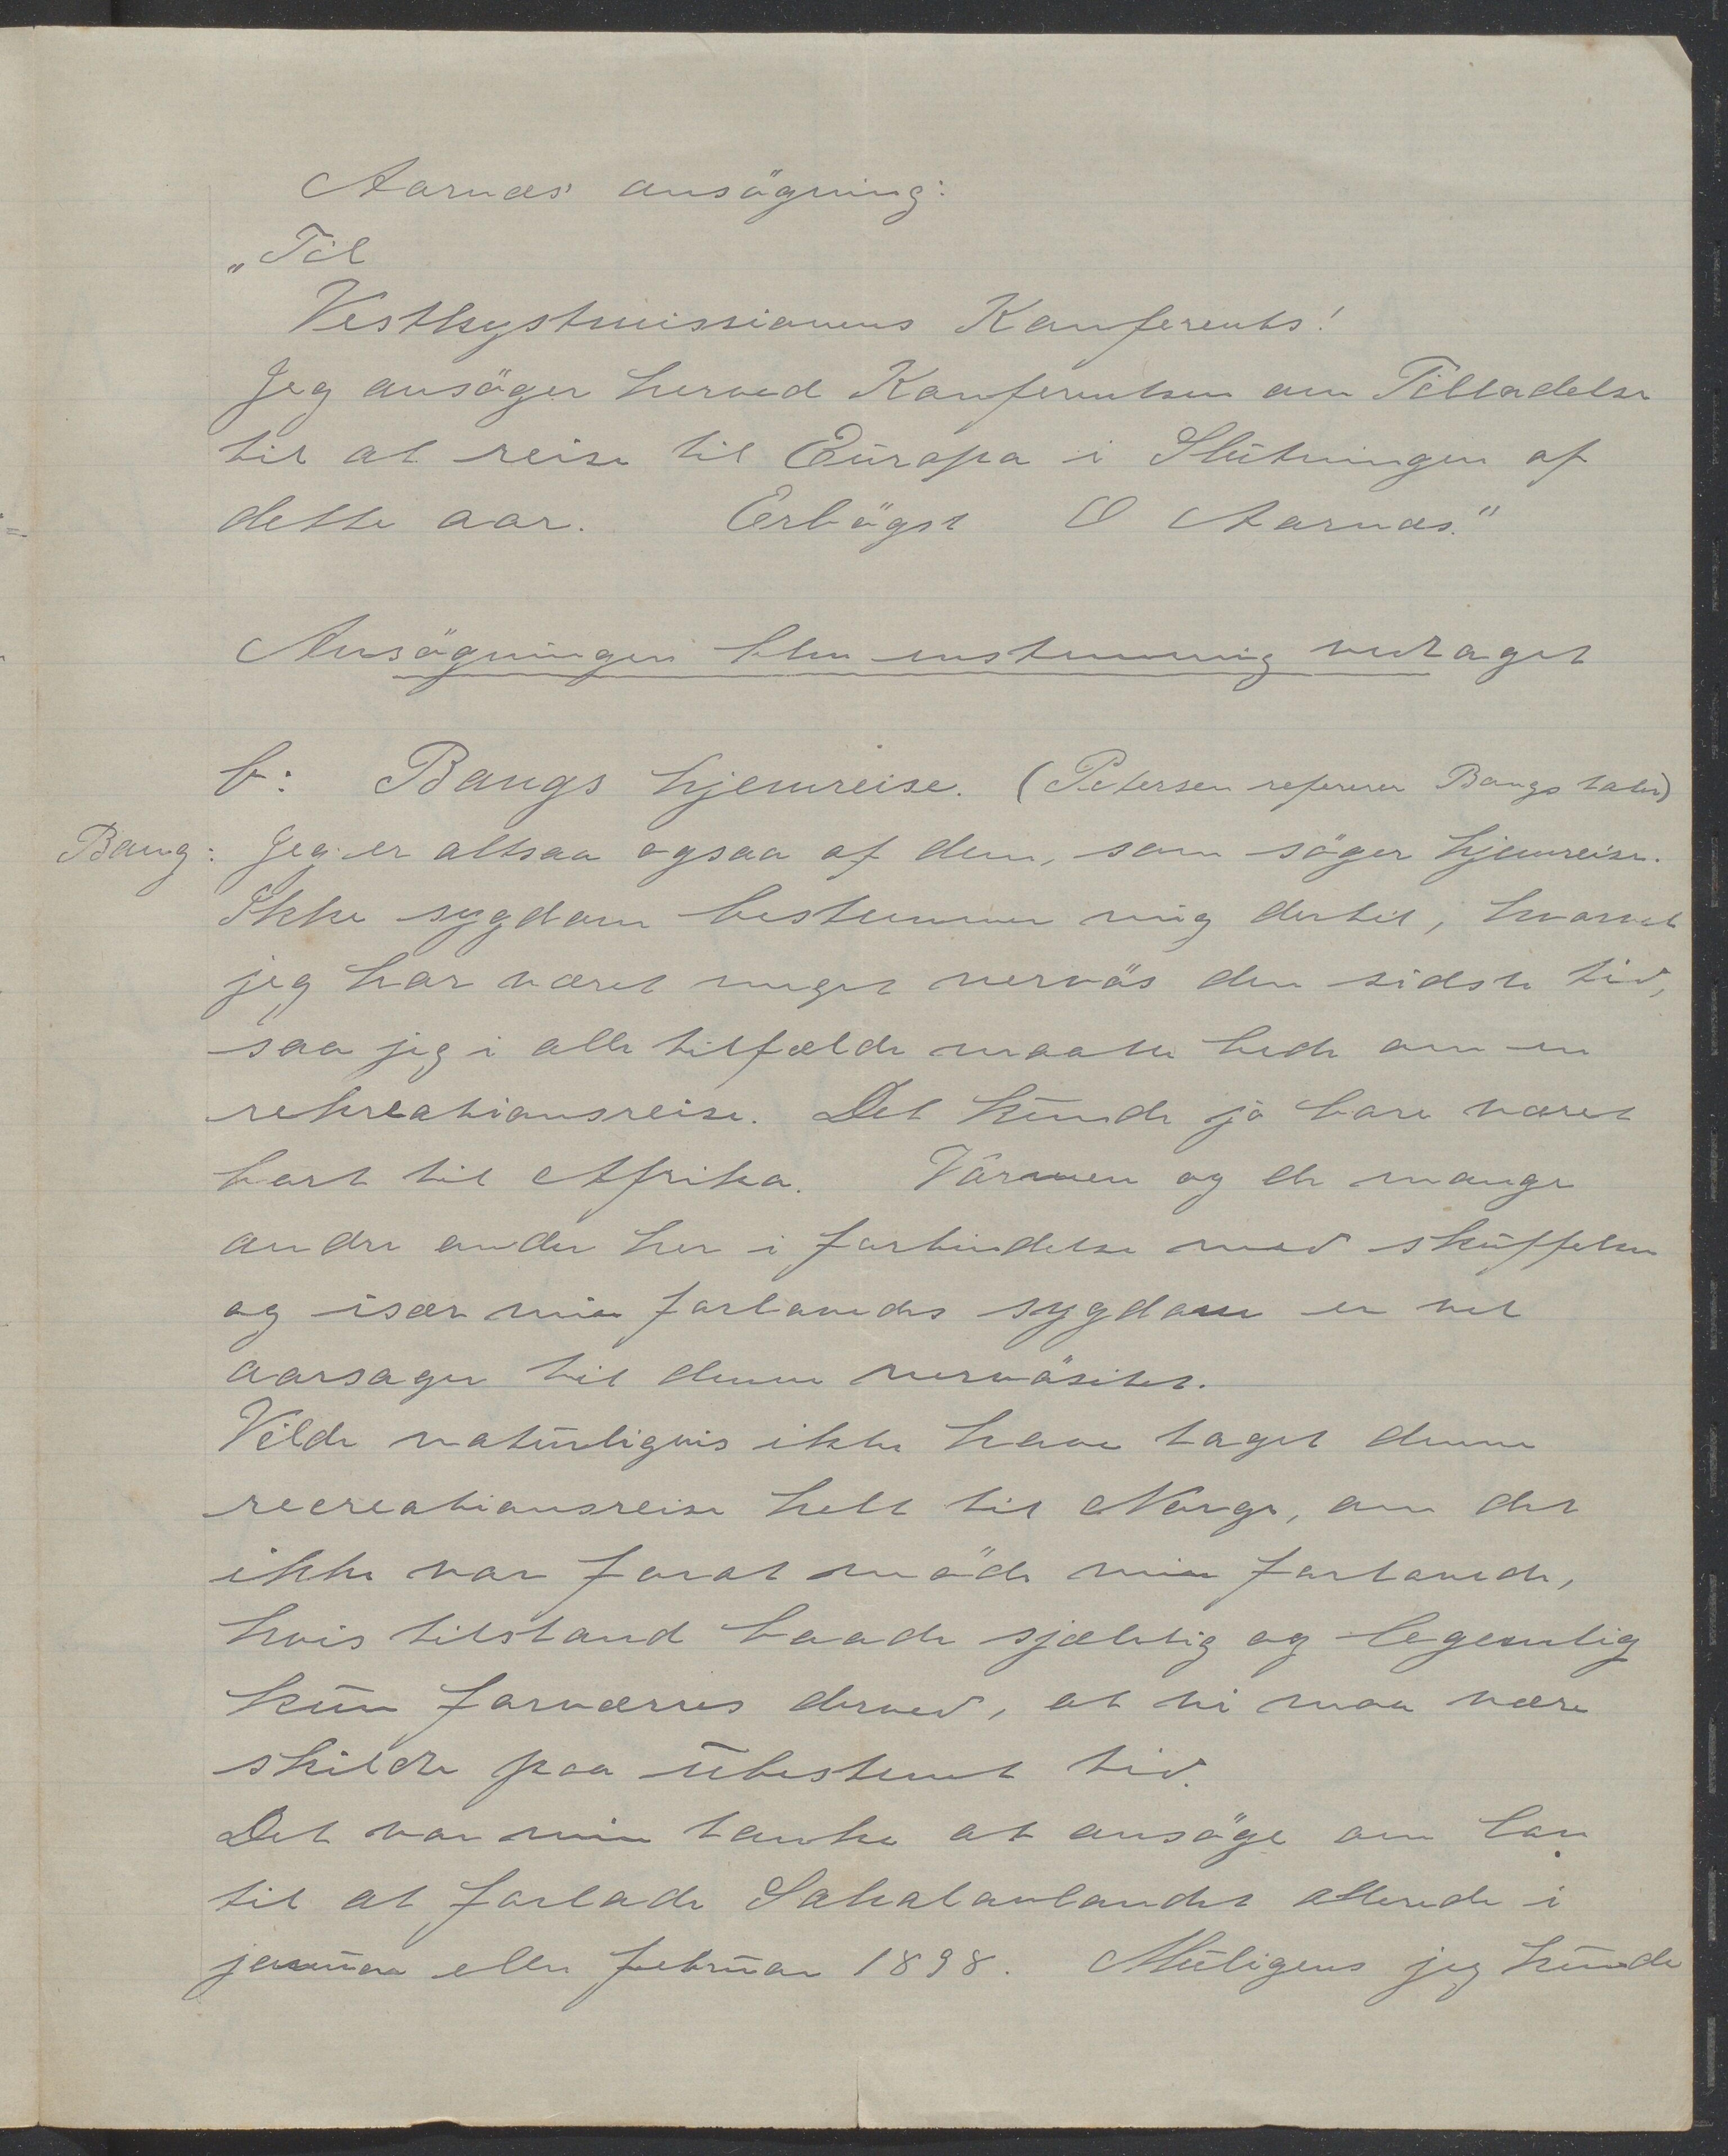 Aarnæs' ansögning:
„Til
Vestkystmissionens Konferents!
Jeg ansöger herved Konferentsen om Tilladelse
til at reise til Europa i Slutningen af
dette aar. Erbögst O Aarnæs."
Ansögningen blev enstemmig vedtaget
b: Bangs hjemreise. (Petersen referer Bangs taler)
Bang: Jeg er altsaa ogsaa af dem, som söger hjemreise.
Ikke sygdom bestemmer mig dertil, hvorvel
jeg har været meget nervös den sidste tid,
saa jeg i alle tilfælde maatte bede om en
rekreationsreise. Det kunde jo bare været
bort til Afrika. Varmen og de mange
andre onder her i forbindelse med skuffelser
og især min forlovedes sygdom er vel
aarsager til denne nervösitet.
Vilde naturligvis ikke have taget denne
recreationsreise helt til Norge, om det
ikke var forat möde min forlovede,
hvis tilstand baade sjælelig og legemlig
kun forværres derved, at vi maa være
skildte paa ubestemt tid.
Det var min tanke at ansöge om lov
til at forlade Sakalavlandet allerede i
januar eller februar 1898. Muligens jeg kunde